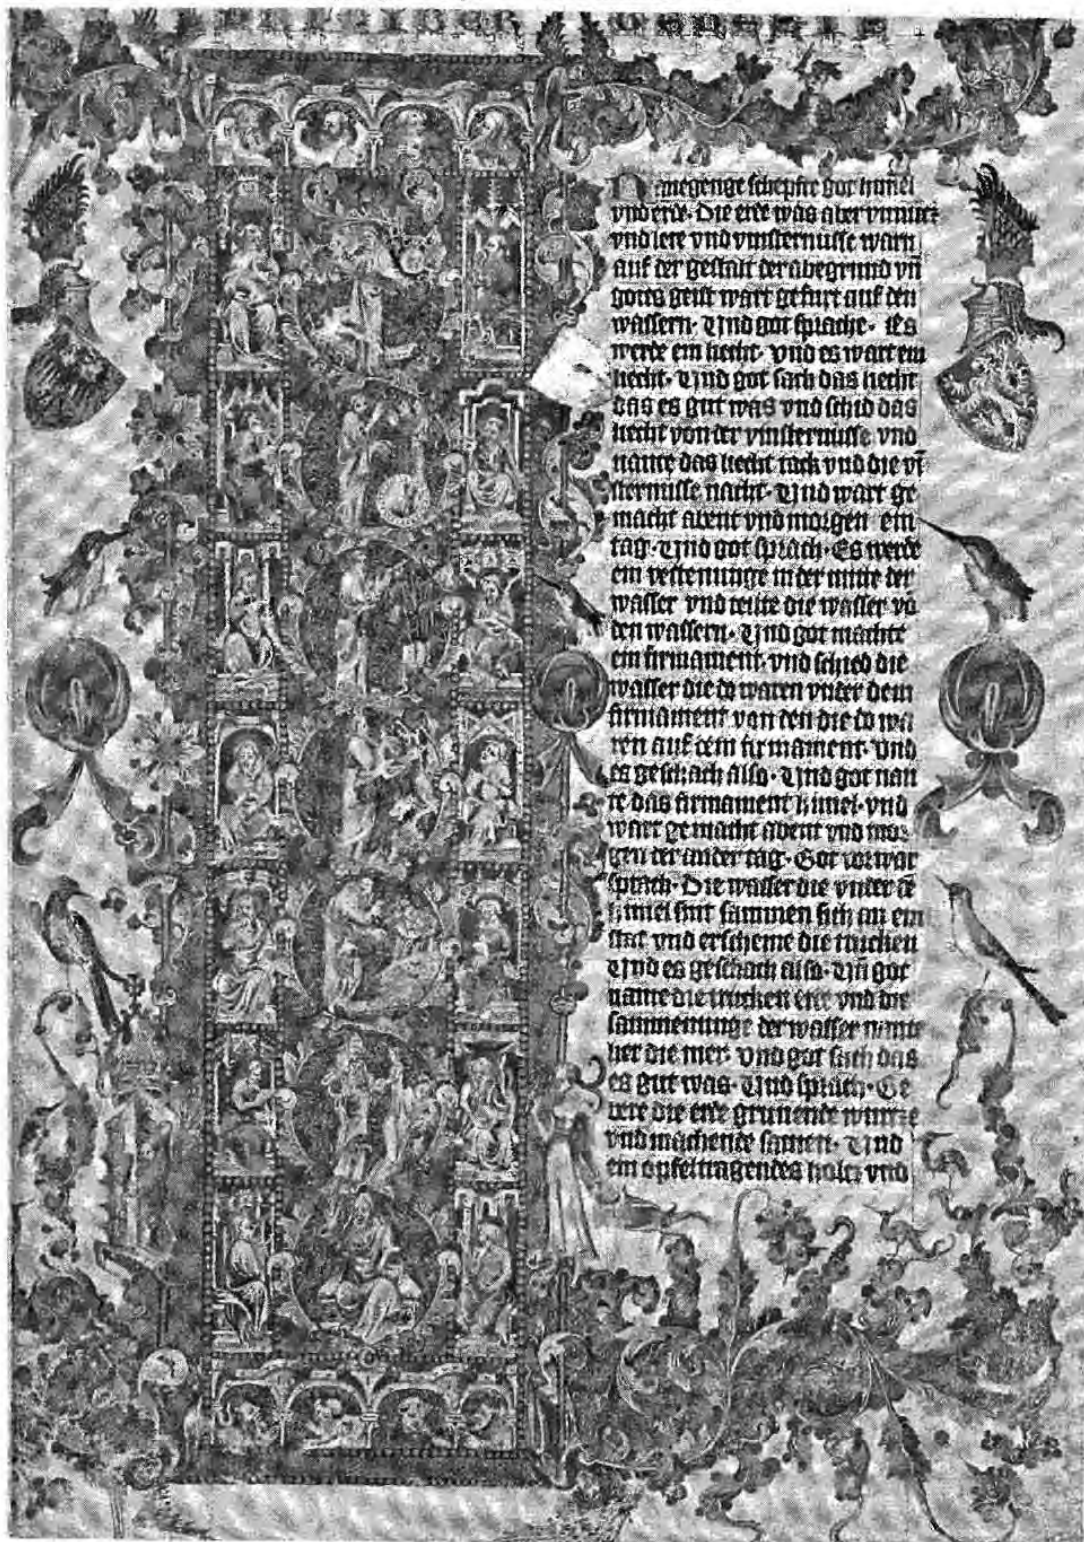 anegenge schepfte got himel
vnd erde. Die erde was aber vnnucz
vnd lere vnd vinsternusse warn
auf der gestalt der abegrund vn̄
gotes geist wart gefurt auf den
wassern. Vnd got sprache. Es
werde ein liecht. vnd es wart ein
liecht. Vnd got sach das liecht
das es gut was vnd schid das
liecht von der vinsternusse vnd
nante das liecht tack vnd die vī
sternusse nacht. Vnd wart ge
macht abent vnd morgen ein
tag. Vnd got sprach. Es werde
ein vestenunge in der mitte der
wasser vnd teilte die wasser vō
den wassern. Vnd got machte
ein firmament. vnd schied die
wasser die do waren vnder dem
firmament von den die do wa
ren auf dem firmament. vnd
es geschach also. Vnd got nan
te das firmament himel. vnd
wart gemacht abent vnd mor
gen der ander tag. Got
sprach. Die wasser die vnter dē
himel sint sammen sich an ein
stat vnd erscheine die trucken
Vnd es geschach also. Vn̄ got
nante die trucken erde vnd die
sammenunge der wasser nante
her die mer. vnd got sach das
es gut was. Vnd sprach. Ge
bere die erde grunende wurze
vnd machende samen. Vnd
ein opfeltragendes holcz vnd